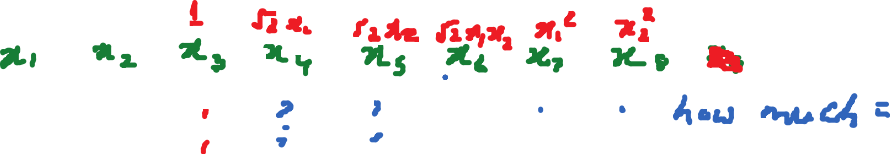 1 √2 x₁ √2 x₂ √2 x₁ x₂ x₁² x₂²
x₁ x₂ x₃ x₄ x₅ x₆ x₇ x₈
how much =